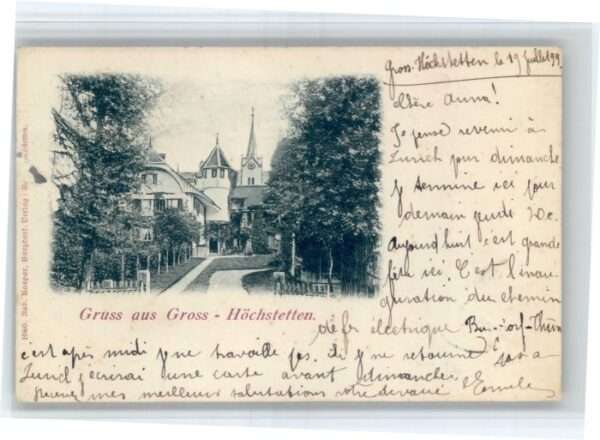 Gross-Höchstetten le 19 Juillet 99
chère Anna!
Je pense revenir à
Zurich pour dimanche
je termine ici pour
demain jeudi 20.
aujourd'hui c'est grande
fête ici. C'est l'inau-
guration du chemin
de fer électrique Burgdorf-Thun
c'est après midi je ne travaille pas. Si je ne retourne pas à
Zurich j'écrirai une carte avant dimanche.
mes meilleurs salutations votre devoué Emile
Gruss aus Gross-Höchstetten.